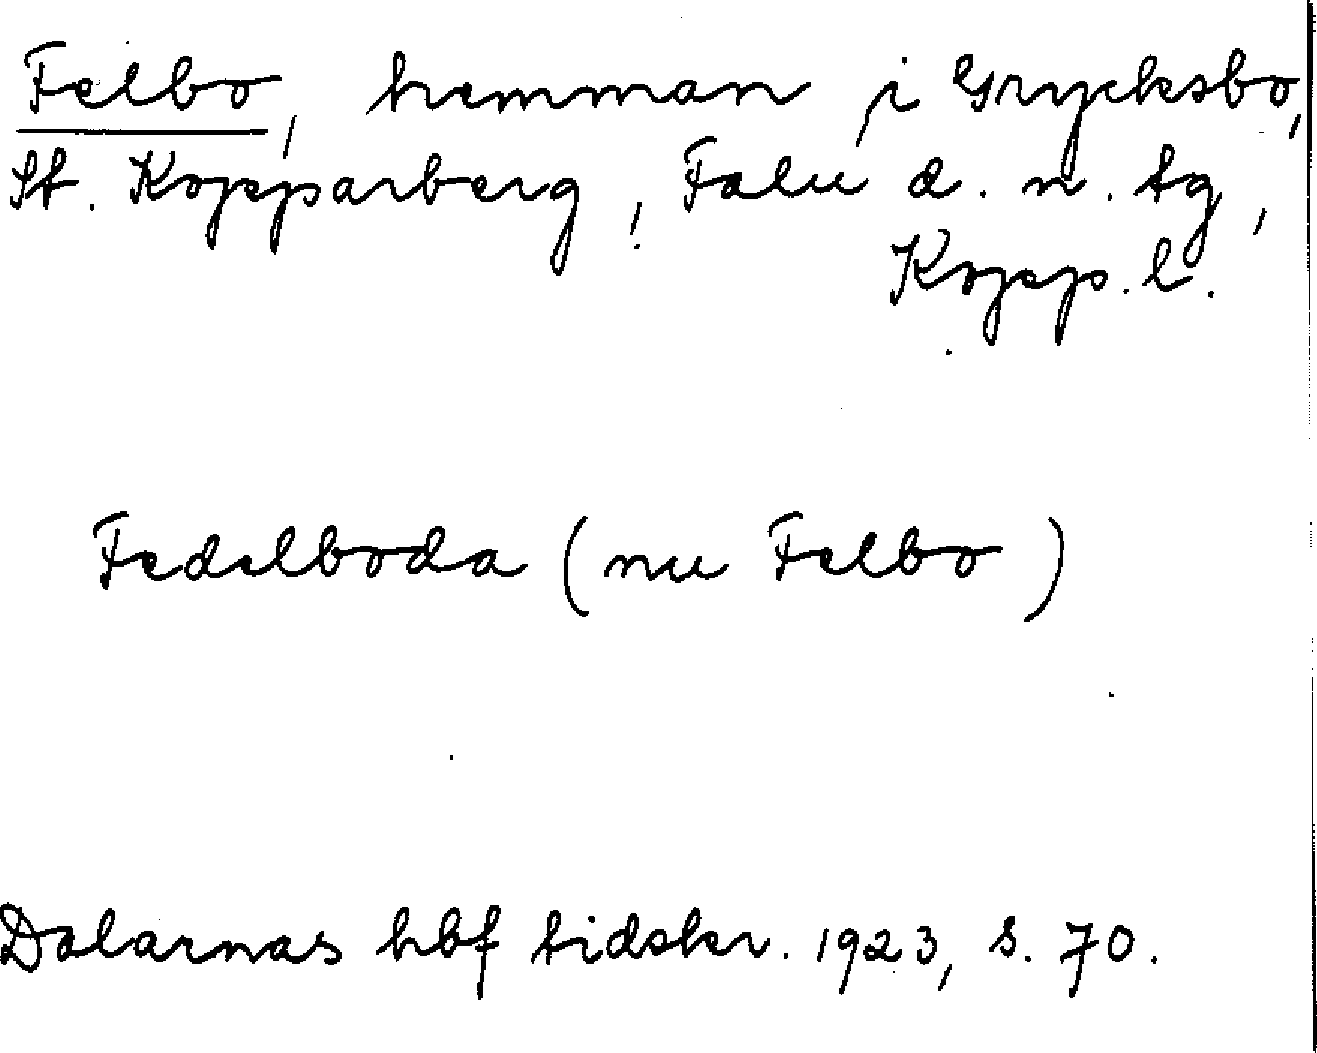 Felbo, hemman i Grycksbo,
St. Kopparberg, Falu d. n. tg,
Kopp. l.
Fedelboda (nu Felbo)
Dalarnas hbf tidskr. 1923, s. 70.